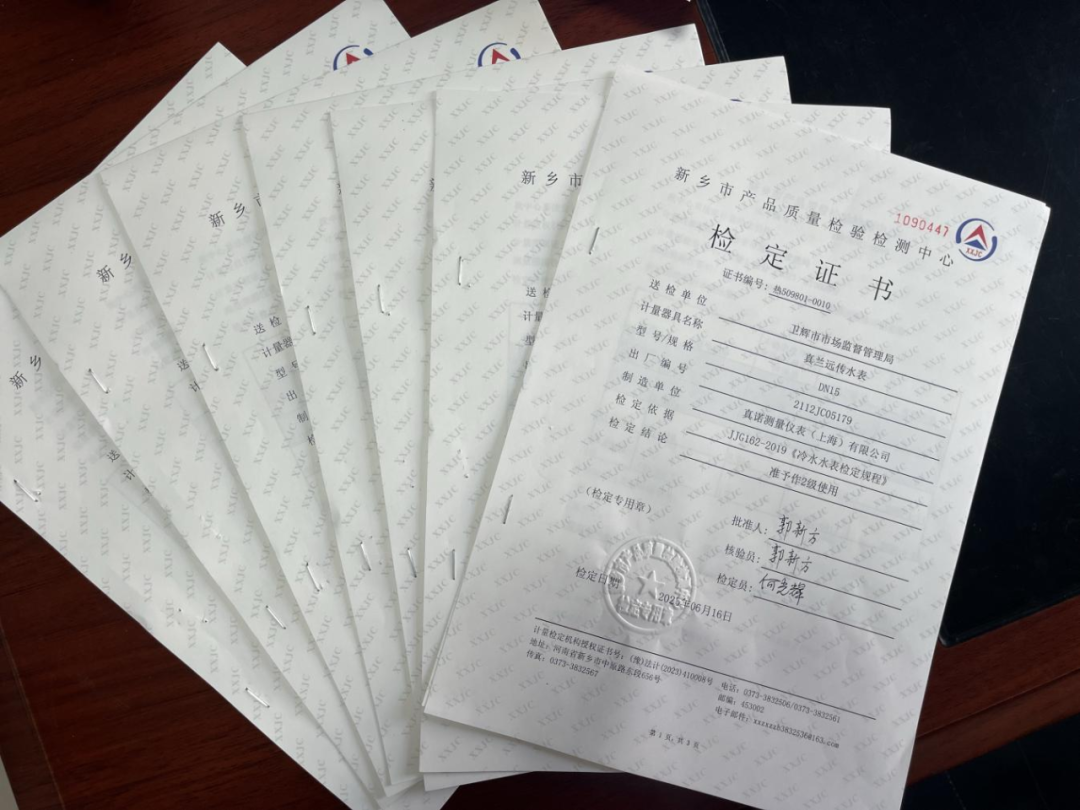 新乡市产品质量检验检测中心
1090447
XXJC
检定证书
证书编号：热509801-0010
送检单位 卫辉市市场监督管理局
计量器具名称 真兰远传水表
型号/规格 DN15
出厂编号 2112JC05179
制造单位 真诺测量仪表（上海）有限公司
检定依据 JJG162-2019《冷水水表检定规程》
检定结论 准予作2级使用
（检定专用章）
批准人：郭新方
核验员：郭新方
检定员：何光辉
检定日期
06月16日
检定专用章
计量检定机构授权证书号：（豫）法计(2023)410008号 电话：0373-3832506/0373-3832561
地址：河南省新乡市中原路东段656号 邮编：453002
传真：0373-3832567
第 1 页，共 3 页
新乡市
送
计量
新乡市
送检
计量器
型号
出
制
检
新乡
送
计
新乡
送
计